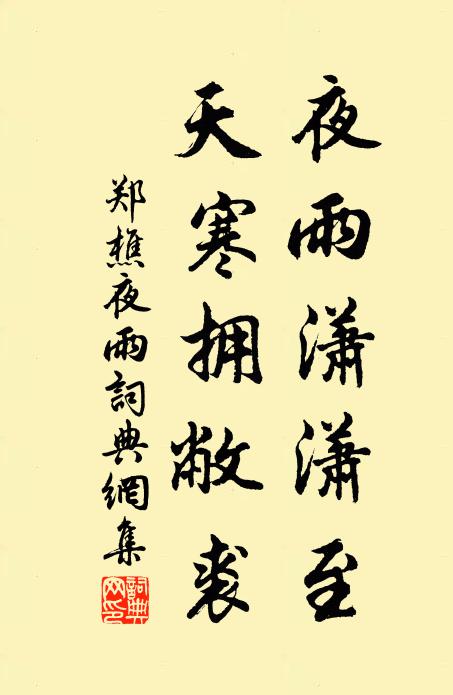 夜雨潇潇至
天寒拥敝裘
郑樵夜雨詞典網集
詞典网印